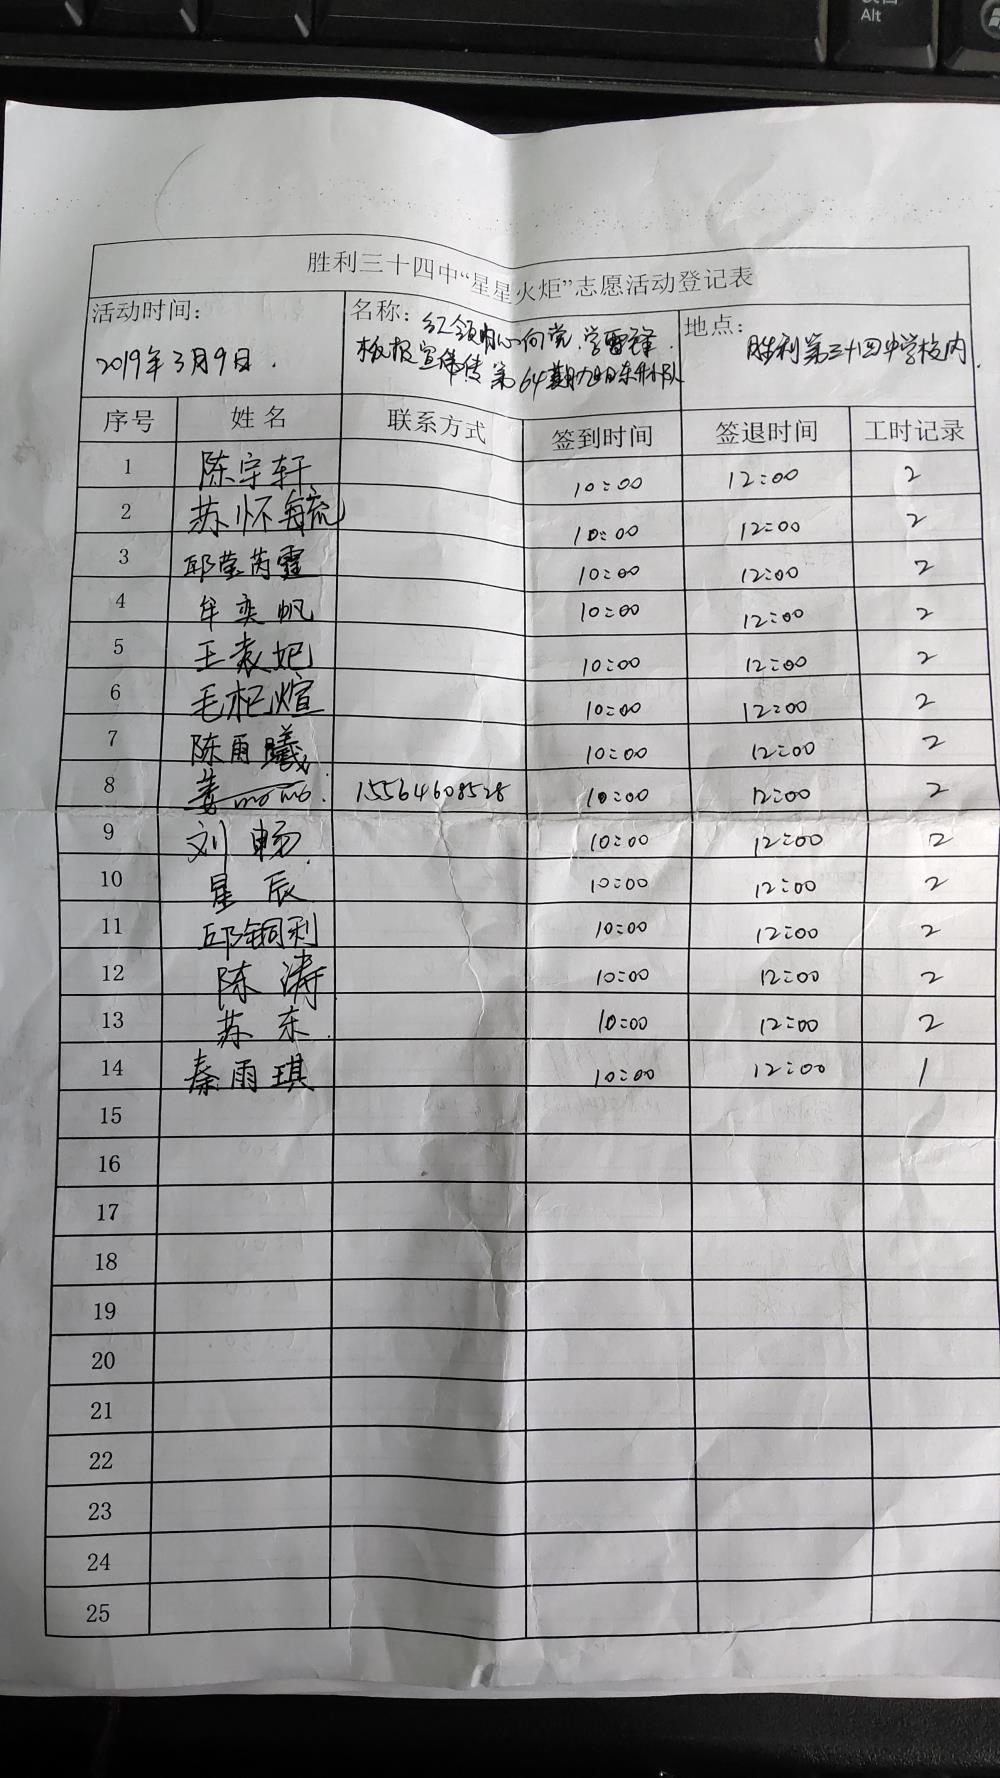 Alt
胜利三十四中“星星火炬”志愿活动登记表
活动时间： 名称： 红领巾心向党.学雷锋. 地点：
2019年3月9日. 板报宣传 第64期 小队 胜利第三十四中学校内.
序号 姓名 联系方式 签到时间 签退时间 工时记录
1 陈宇轩 10:00 12:00 2
2 苏怀毓 10:00 12:00 2
3 邱莹芮霆 10:00 12:00 2
4 牟奕帆 10:00 12:00 2
5 王袁妃 10:00 12:00 2
6 毛柜煊 10:00 12:00 2
7 陈雨曦 10:00 12:00 2
8 姜momo. 15564608528 10:00 12:00 2
9 刘畅. 10:00 12:00 2
10 星辰 10:00 12:00 2
11 邱铜利 10:00 12:00 2
12 陈涛 10:00 12:00 2
13 苏东. 10:00 12:00 2
14 秦雨琪 10:00 12:00 1
15
16
17
18
19
20
21
22
23
24
25